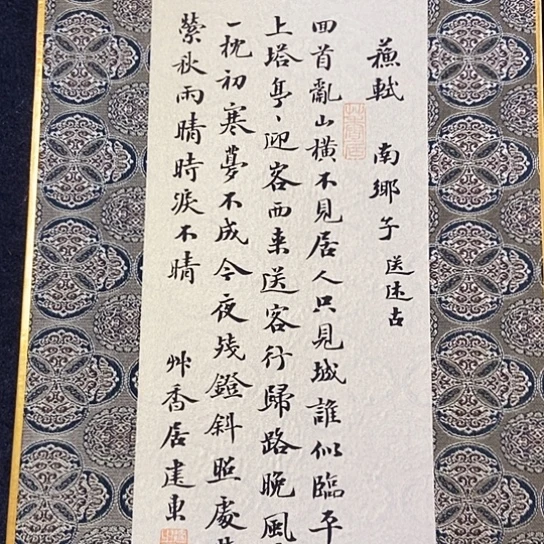 蘇軾 南鄉子 送述古
回首亂山橫不見居人只見城誰似臨平
上塔亭亭迎客西來送客行歸路晚風
一枕初寒夢不成今夜殘鐙斜照處
熒秋雨晴時淚不晴
艸香居建東